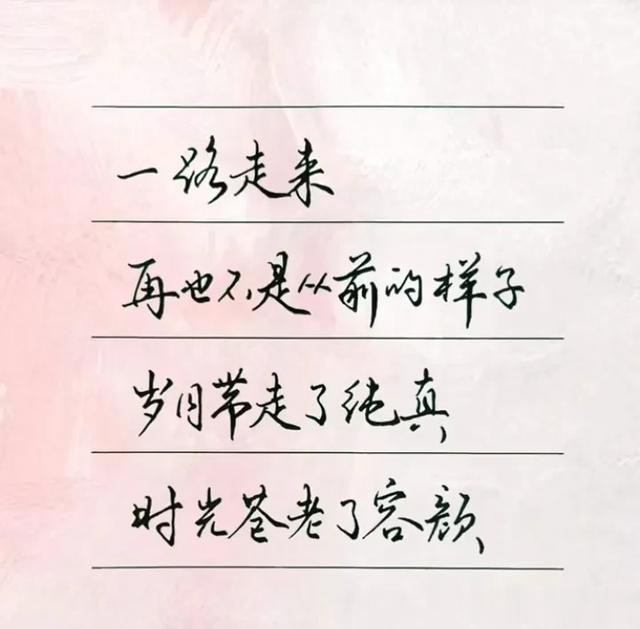 一路走来
再也不是从前的样子
岁月带走了纯真
时光苍老了容颜